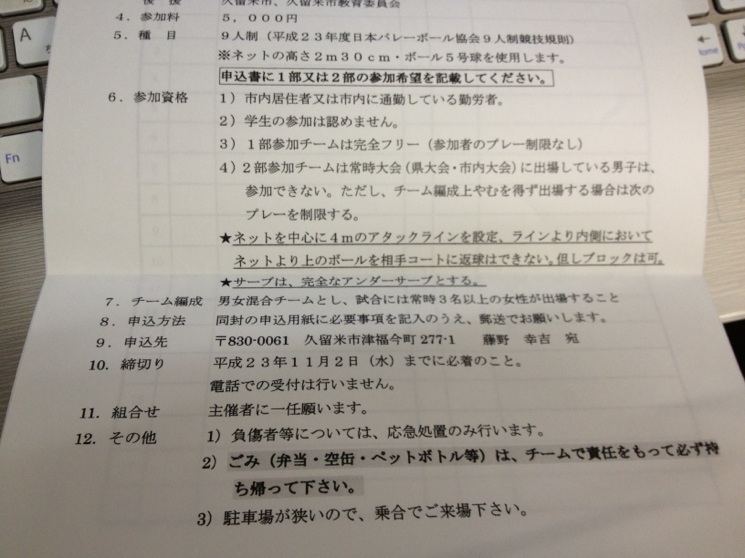 後援 久留米市、久留米市教育委員会
4．参加料 5，000円
5．種目 9人制（平成23年度日本バレーボール協会9人制競技規則）
※ネットの高さ2m30cm・ボール5号球を使用します。
申込書に1部又は2部の参加希望を記載してください。
6．参加資格 1）市内居住者又は市内に通勤している勤労者。
2）学生の参加は認めません。
3）1部参加チームは完全フリー（参加者のプレー制限なし）
4）2部参加チームは常時大会（県大会・市内大会）に出場している男子は、
参加できない。ただし、チーム編成上やむを得ず出場する場合は次の
プレーを制限する。
★ネットを中心に4mのアタックラインを設定、ラインより内側において
ネットより上のボールを相手コートに返球はできない。但しブロックは可。
★サーブは、完全なアンダーサーブとする。
7．チーム編成 男女混合チームとし、試合には常時3名以上の女性が出場すること
8．申込方法 同封の申込用紙に必要事項を記入のうえ、郵送でお願いします。
9．申込先 〒830-0061 久留米市津福今町277-1 藤野 幸吉 宛
10．締切り 平成23年11月2日（水）までに必着のこと。
電話での受付は行いません。
11．組合せ 主催者に一任願います。
12．その他 1）負傷者等については、応急処置のみ行います。
2）ごみ（弁当・空缶・ペットボトル等）は、チームで責任をもって必ず持
ち帰って下さい。
3）駐車場が狭いので、乗合でご来場下さい。
A
Fn
Home